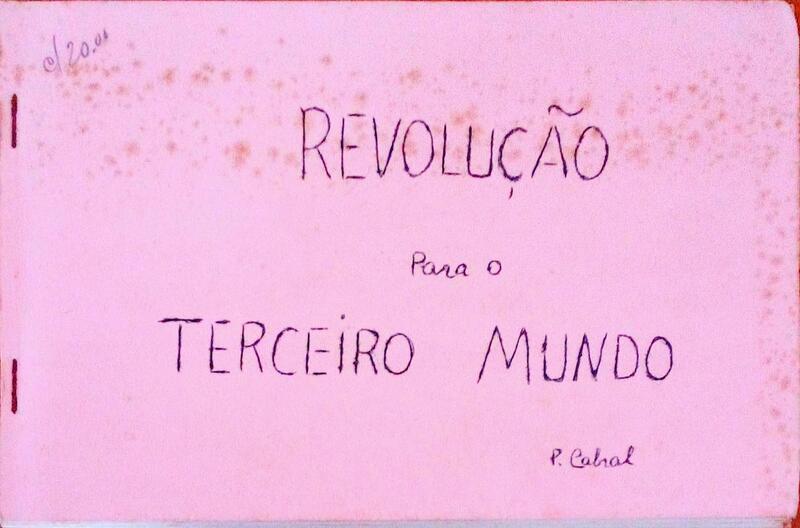 c/20.00
REVOLUÇÃO
Para o
TERCEIRO MUNDO
P. Cabral